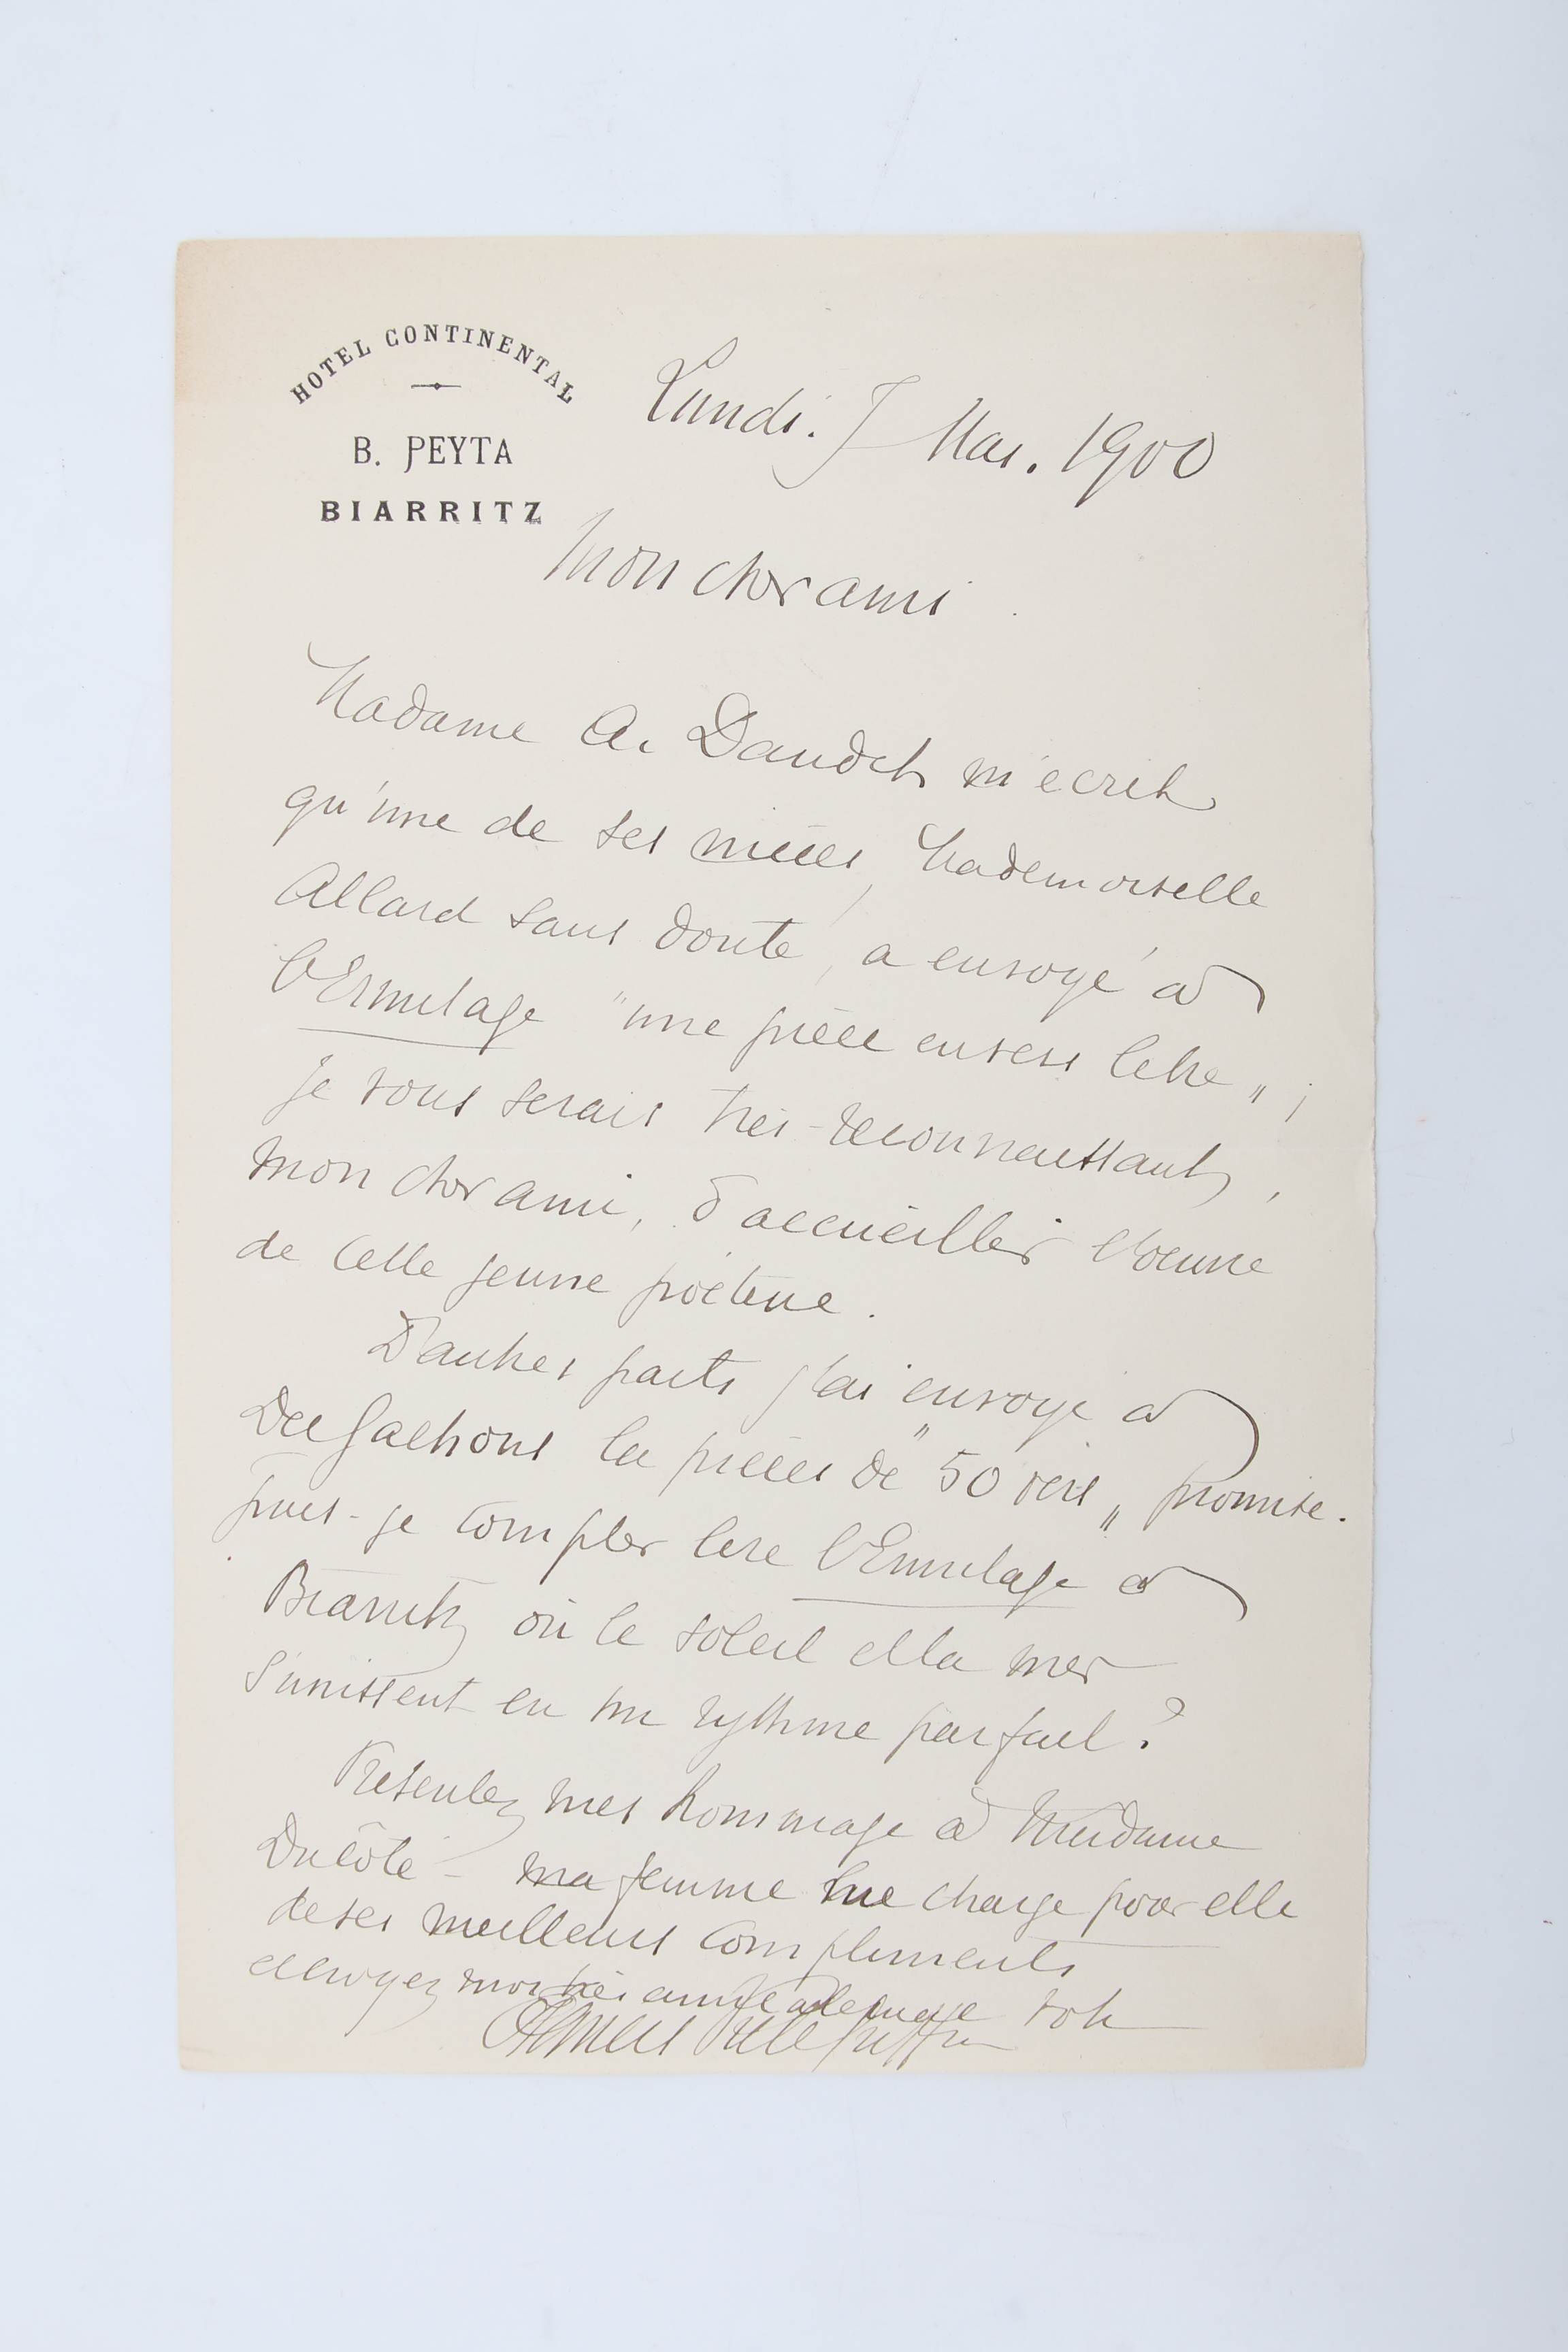 HOTEL CONTINENTAL
B. PEYTA
BIARRITZ
Lundi. 7 Mai. 1900
Mon cher ami
Madame A. Daudet m'ecrit
qu'une de ses nièces, Mademoiselle
Allard sans doute, a envoyé à
l'Ermitage "une pièce en vers libre" ;
je vous serais très-reconnaissant,
mon cher ami, d'accueillir l'œuvre
de cette jeune poétesse.
D'autres parts j'ai envoyé à
Des Gachons la pièces de "50 vers" promise.
puis-je compter lire l'Ermitage à
Biarritz où le soleil et la mer
s'unissent en un rythme parfait ?
Présentez mes hommage à Madame
Ducôté - ma femme me charge pour elle
de ses meilleurs compliments
et croyez moi très votre